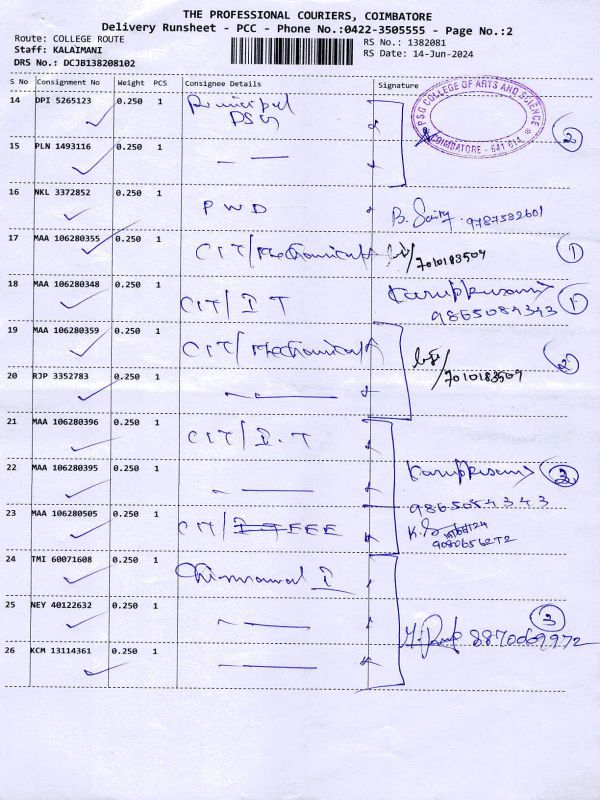 THE PROFESSIONAL COURIERS, COIMBATORE
Delivery Runsheet - PCC - Phone No.:0422-3505555 - Page No.:2
Route: COLLEGE ROUTE
RS No.: 1382081
Staff: KALAIMANI
RS Date: 14-Jun-2024
DRS No.: DCJB138208102
S No Consignment No Weight PCS Consignee Details Signature
14 DPI 5265123 0.250 1 Principal
PSG
PSG COLLEGE OF ARTS AND SCIENCE
COIMBATORE - 641 014
2
15 PLN 1493116 0.250 1
16 NKL 3372852 0.250 1 PWD
9787582601
17 MAA 106280355 0.250 1 CIT/Mechanical
7010183509
1
18 MAA 106280348 0.250 1 CIT/IT
Karuppusamy
9865084343
1
19 MAA 106280359 0.250 1 CIT/Mechanical
7010183509
2
20 RJP 3352783 0.250 1
21 MAA 106280396 0.250 1 CIT/I.T
22 MAA 106280395 0.250 1
Karuppusamy
9865084343
23 MAA 106280505 0.250 1 CIT/ EEE
24 TMI 60071608 0.250 1
25 NEY 40122632 0.250 1
3
8870069972
26 KCM 13114361 0.250 1